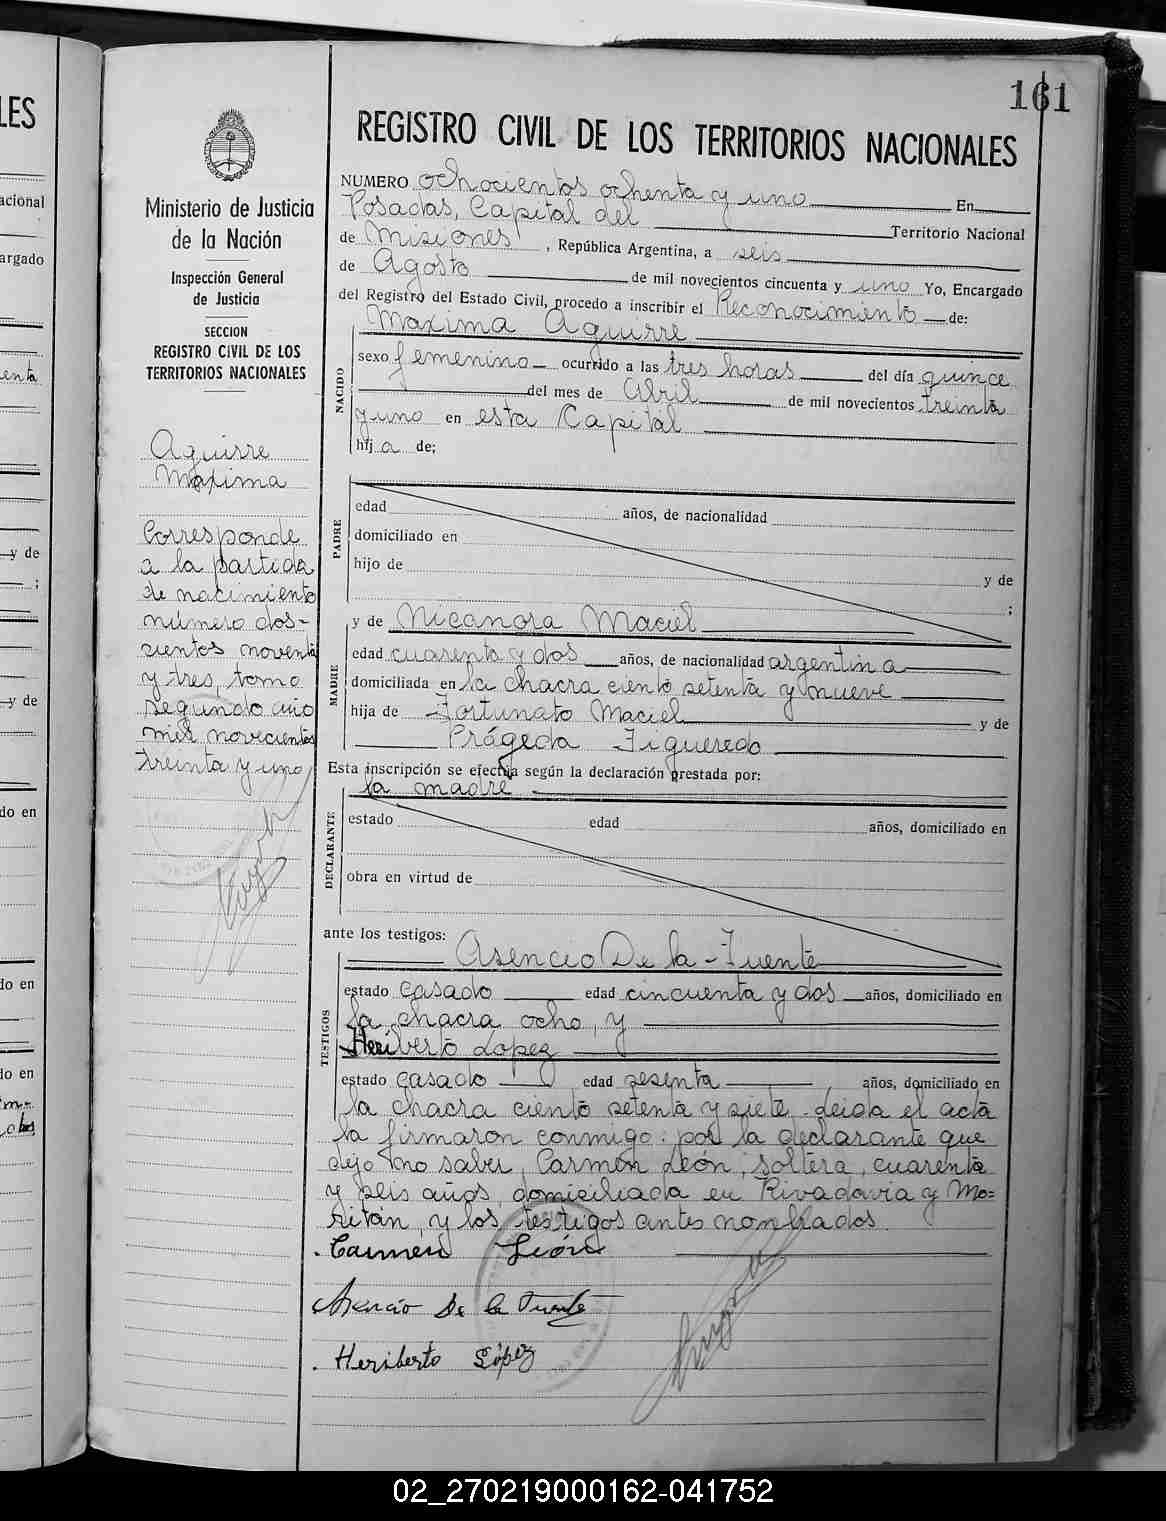 161
REGISTRO CIVIL DE LOS TERRITORIOS NACIONALES
Ministerio de Justicia
de la Nación
Inspección General
de Justicia
SECCION
REGISTRO CIVIL DE LOS
TERRITORIOS NACIONALES
Aguirre
Maxima
Corresponde
a la partida
de nacimiento
número dos-
cientos noventa
y tres, tomo
segundo año
mil novecientos
treinta y uno
NUMERO ochocientos ochenta y uno En
Posadas, Capital del Territorio Nacional
de Misiones, República Argentina, a seis
de Agosto de mil novecientos cincuenta y uno Yo, Encargado
del Registro del Estado Civil, procedo a inscribir el Reconocimiento de:
Maxima Aguirre
NACIDO
sexo femenino ocurrido a las tres horas del día quince
del mes de Abril de mil novecientos treinta
y uno en esta Capital
hij a de:
PADRE
edad años, de nacionalidad
domiciliado en
hijo de y de
;
MADRE
y de Nicanora Maciel
edad cuarenta y dos años, de nacionalidad argentina
domiciliada en la chacra ciento setenta y nueve
hija de Fortunato Maciel y de
Prágeda Figueredo
Esta inscripción se efectúa según la declaración prestada por:
la madre
DECLARANTE
estado edad años, domiciliado en
obra en virtud de
ante los testigos:
Asencio De la-Fuente
TESTIGOS
estado casado edad cincuenta y dos años, domiciliado en
la chacra ocho, y
Heriberto Lopez
estado casado edad sesenta, años, domiciliado en
la chacra ciento setenta y siete. Leida el acta
la firmaron conmigo: por la declarante que
dijo no saber, Carmen León, soltera, cuarenta
y seis años, domiciliada en Rivadavia y Mo=
ritán, y los testigos antes nombrados.
Carmen León
Asencio De la Fuente
Heriberto López
LES
acional
argado
enta
y de
;
y de
do en
do en
do en
02_270219000162-041752